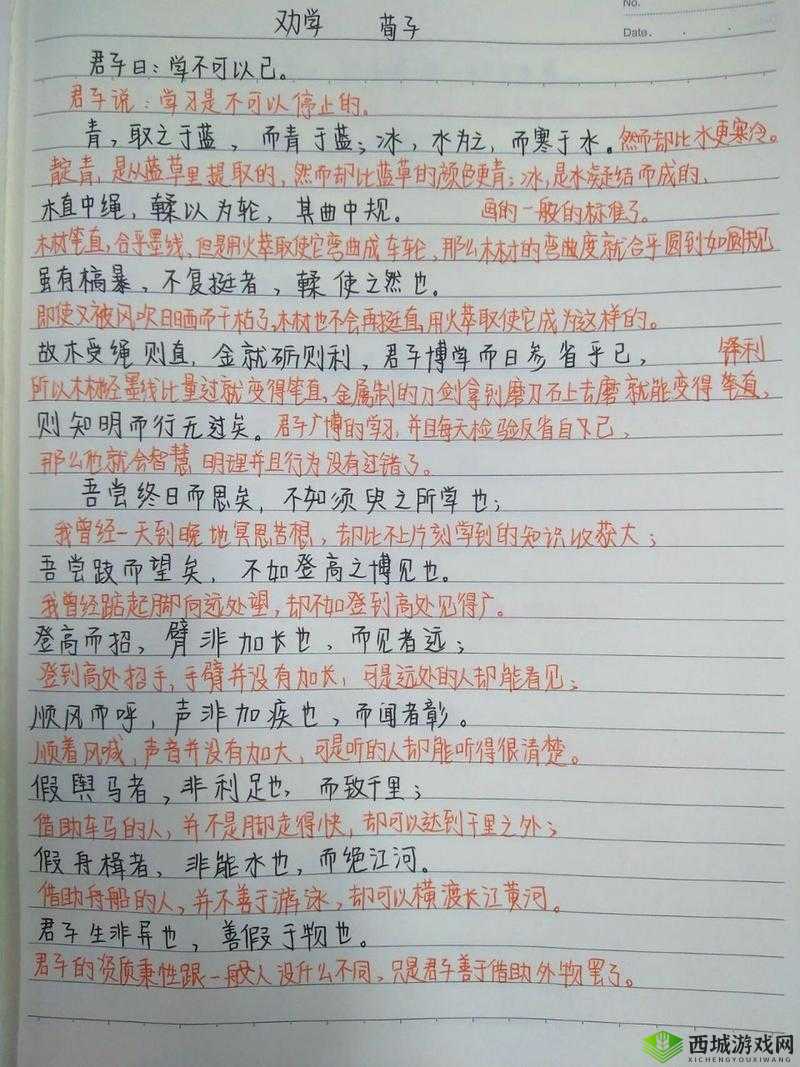 No.
Date.
劝学 荀子
君子曰：学不可以已。
君子说：学习是不可以停止的。
青，取之于蓝，而青于蓝；冰，水为之，而寒于水。然而却比水更寒冷。
靛青，是从蓝草里提取的，然而却比蓝草的颜色更青；冰，是水凝结而成的，
木直中绳，輮以为轮，其曲中规。 画的一般的标准了。
木材笔直，合乎墨线，但是用火萃取使它弯曲成车轮，那么木材的弯曲度就合乎圆到如圆规
虽有槁暴，不复挺者，輮使之然也。
即使又被风吹日晒而干枯了，木材也不会再挺直，用火萃取使它成为这样的。
故木受绳则直，金就砺则利，君子博学而日参省乎己， 锋利
所以木材经墨线比量过就变得笔直，金属制的刀剑拿到磨刀石上去磨就能变得笔直，
则知明而行无过矣。君子广博的学习，并且每天检验反省自己，
那么他就会智慧明理并且行为没有过错了。
吾尝终日而思矣，不如须臾之所学也；
我曾经一天到晚地冥思苦想，却比不上片刻学到的知识收获大；
吾尝跂而望矣，不如登高之博见也。
我曾经踮起脚向远处望，却不如登到高处见得广。
登高而招，臂非加长也，而见者远；
登到高处招手，手臂并没有加长，可是远处的人却能看见；
顺风而呼，声非加疾也，而闻者彰。
顺着风喊，声音并没有加大，可是听的人却能听得很清楚。
假舆马者，非利足也，而致千里；
借助车马的人，并不是脚走得快，却可以达到千里之外；
假舟楫者，非能水也，而绝江河。
借助舟船的人，并不善于游泳，却可以横渡长江黄河。
君子生非异也，善假于物也。
君子的资质秉性跟一般人没什么不同，只是君子善于借助外物罢了。
西城游戏网
XICHENGYOUXIWANG